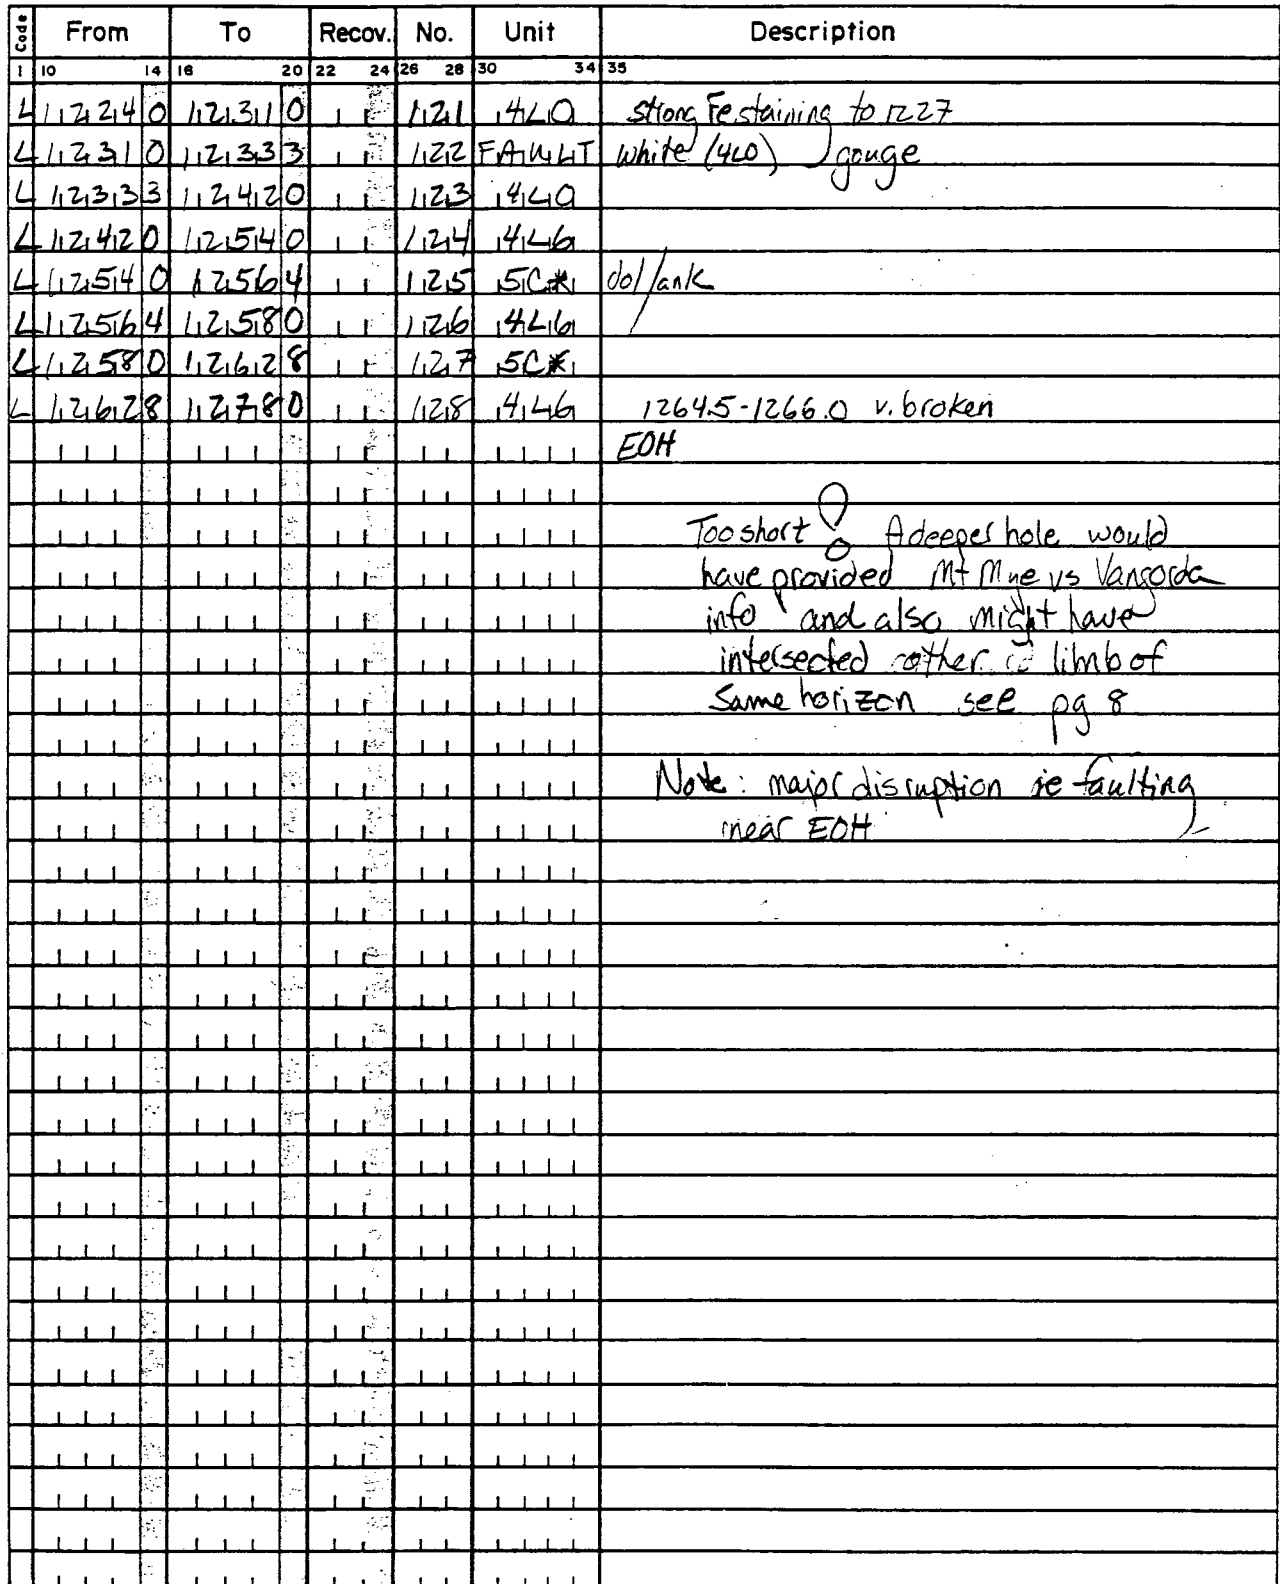 Code From To Recov. No. Unit Description
1 10 14 16 20 22 24 26 28 30 34 35
L 1224 0 1231 0 121 4L0 strong Fe staining to 1227
L 1231 0 1233 3 122 FAULT white (4L0) gouge
L 1233 3 1242 0 123 4L0
L 1242 0 1254 0 124 4L6
L 1254 0 1256 4 125 5C* dol/ank
L 1256 4 1258 0 126 4L6
L 1258 0 1262 8 127 5C*
L 1262 8 1278 0 128 4L6 1264.5-1266.0 v. broken
EOH
Too short! A deeper hole would
have provided Mt Mye vs Vangorda
info and also might have
intersected limb of
same horizon see pg 8
Note: major disruption ie faulting
near EOH